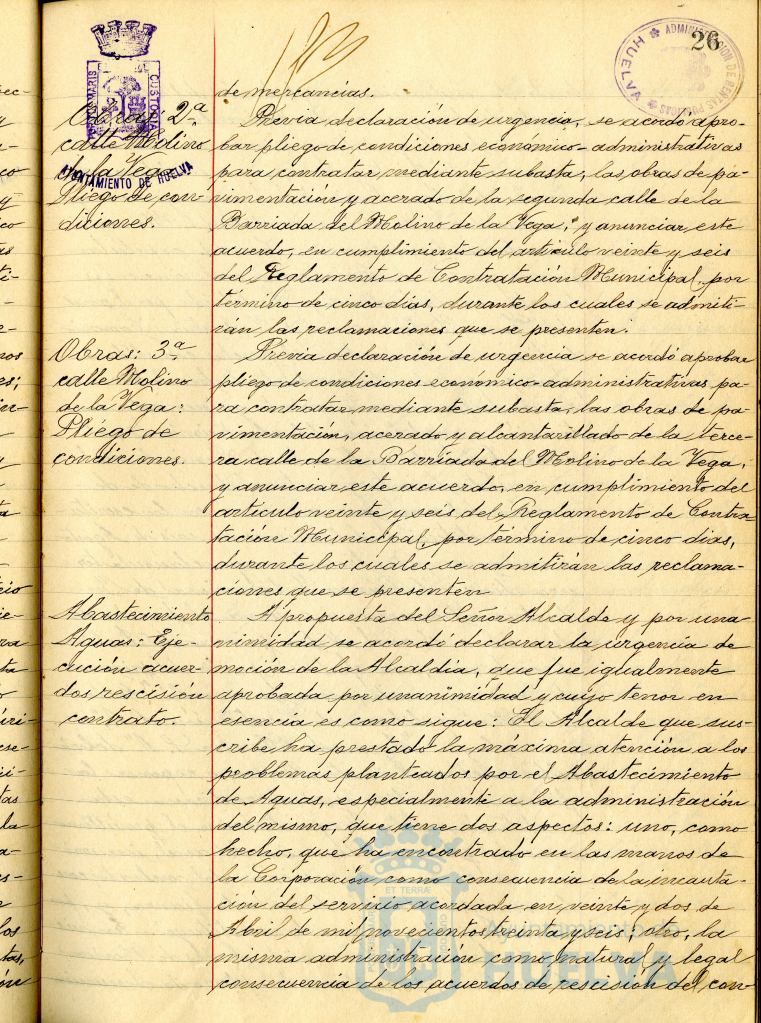 26
ADMINISTRACION DE RENTAS PUBLICAS
HUELVA
PORTUS MARIS
CUSTODIA
AYUNTAMIENTO DE HUELVA
de mercancías.
Obras: 2ª
calle Molino
de la Vega:
Pliego de con-
diciones.
Previa declaración de urgencia, se acordó apro-
bar pliego de condiciones económico-administrativas
para contratar mediante subasta, las obras de pa-
vimentación y acerado de la segunda calle de la
Barriada del Molino de la Vega, y anunciar este
acuerdo, en cumplimiento del articulo veinte y seis
del Reglamento de Contratación Municipal, por
término de cinco dias, durante los cuales se admiti-
rán las reclamaciones que se presenten.
Obras: 3ª
calle Molino
de la Vega:
Pliego de
condiciones.
Previa declaración de urgencia se acordó aprobar
pliego de condiciones económico-administrativas pa-
ra contratar, mediante subasta, las obras de pa-
vimentación, acerado y alcantarillado de la terce-
ra calle de la Barriada del Molino de la Vega,
y anunciar este acuerdo, en cumplimiento del
articulo veinte y seis del Reglamento de Contra-
tación Municipal, por término de cinco dias,
durante los cuales se admitirán las reclama-
ciones que se presenten
Abastecimiento
Aguas: Eje-
cución acuer-
dos rescisión
contrato.
A propuesta del Señor Alcalde y por una-
nimidad se acordó declarar la urgencia de
moción de la Alcaldía, que fue igualmente
aprobada por unanimidad y cuyo tenor en
esencia es como sigue: El Alcalde que sus-
cribe ha prestado la máxima atención a los
problemas planteados por el Abastecimiento
de Aguas, especialmente a la administración
del mismo, que tiene dos aspectos: uno, como
hecho, que ha encontrado en las manos de
la Corporación como consecuencia de la incauta-
ción del servicio acordada en veinte y dos de
Abril de mil novecientos treinta y seis; otro, la
misma administración como natural y legal
consecuencia de los acuerdos de rescisión del con
Ayuntamiento de
HUELVA